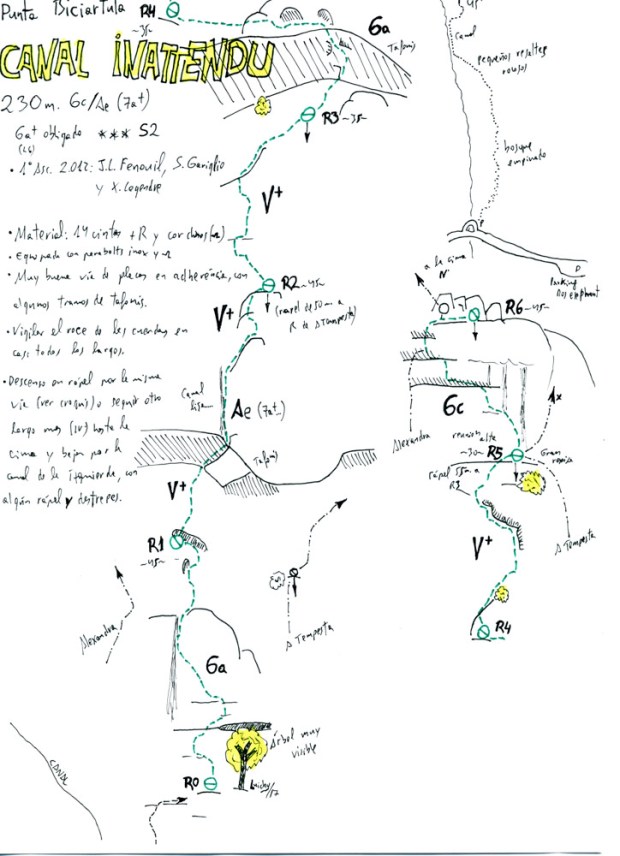 Punta Biciartula
CANAL INATTENDU
230 m. 6c/Ae (7a+)
6a+ obligado *** S2
(L6)
• 1ª Asc. 2.012: J.L. Fenouil, S. Gariglio
y X. Legendre
• Material: 14 cintas + R y cordinos
• Equipada con parabolts inox y
• Muy buena vía de placas en adherencia, con
algunos tramos de tafonis.
• Vigilar el roce de las cuerdas en
casi todos los largos.
• Descenso en rápel por la misma
vía (ver croquis) o seguir otro
largo más (IV) hasta la
cima y bajar por la
canal de la izquierda, con
algún rápel y destrepes.
R4
~35~
6a
Tafonis
R3 ~35~
V+
R2 ~45~
(rapel de 50 m a
R de Δ Tempesta)
V+
Canal
lisa
Ae (7a+)
Tafonis
V+
R1
~45~
Alexandra
Δ Tempesta
6a
Árbol muy
visible
R0
CANAL
Canal
pequeños resaltes
rocosos
bosque
empinado
P
Parking
a la cima
N
R6 ~45~
6c
Alexandra
reunión
alta
~30~
R5
Gran
repisa
rápel 55m a
R3
V+
Δ Tempesta
R4